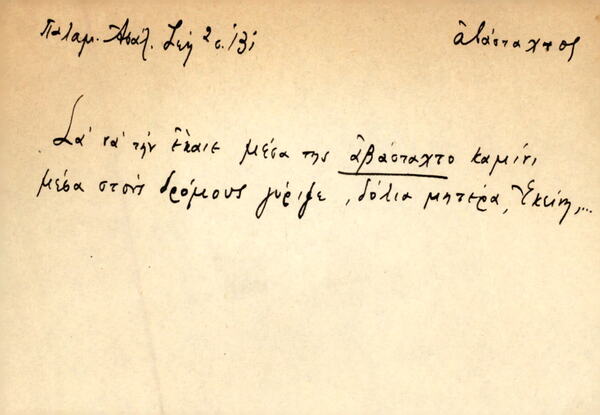 Παλαμ. Ἀσάλ. Ζωή 2 σ. 131
ἀβάσταχτος
Σὰ νὰ τὴν ἔκαιε μέσα της ἀβάσταχτο καμίνι,
μέσα στοὺς δρόμους γύριζε, δόλια μητέρα, Ἐκείνη,...